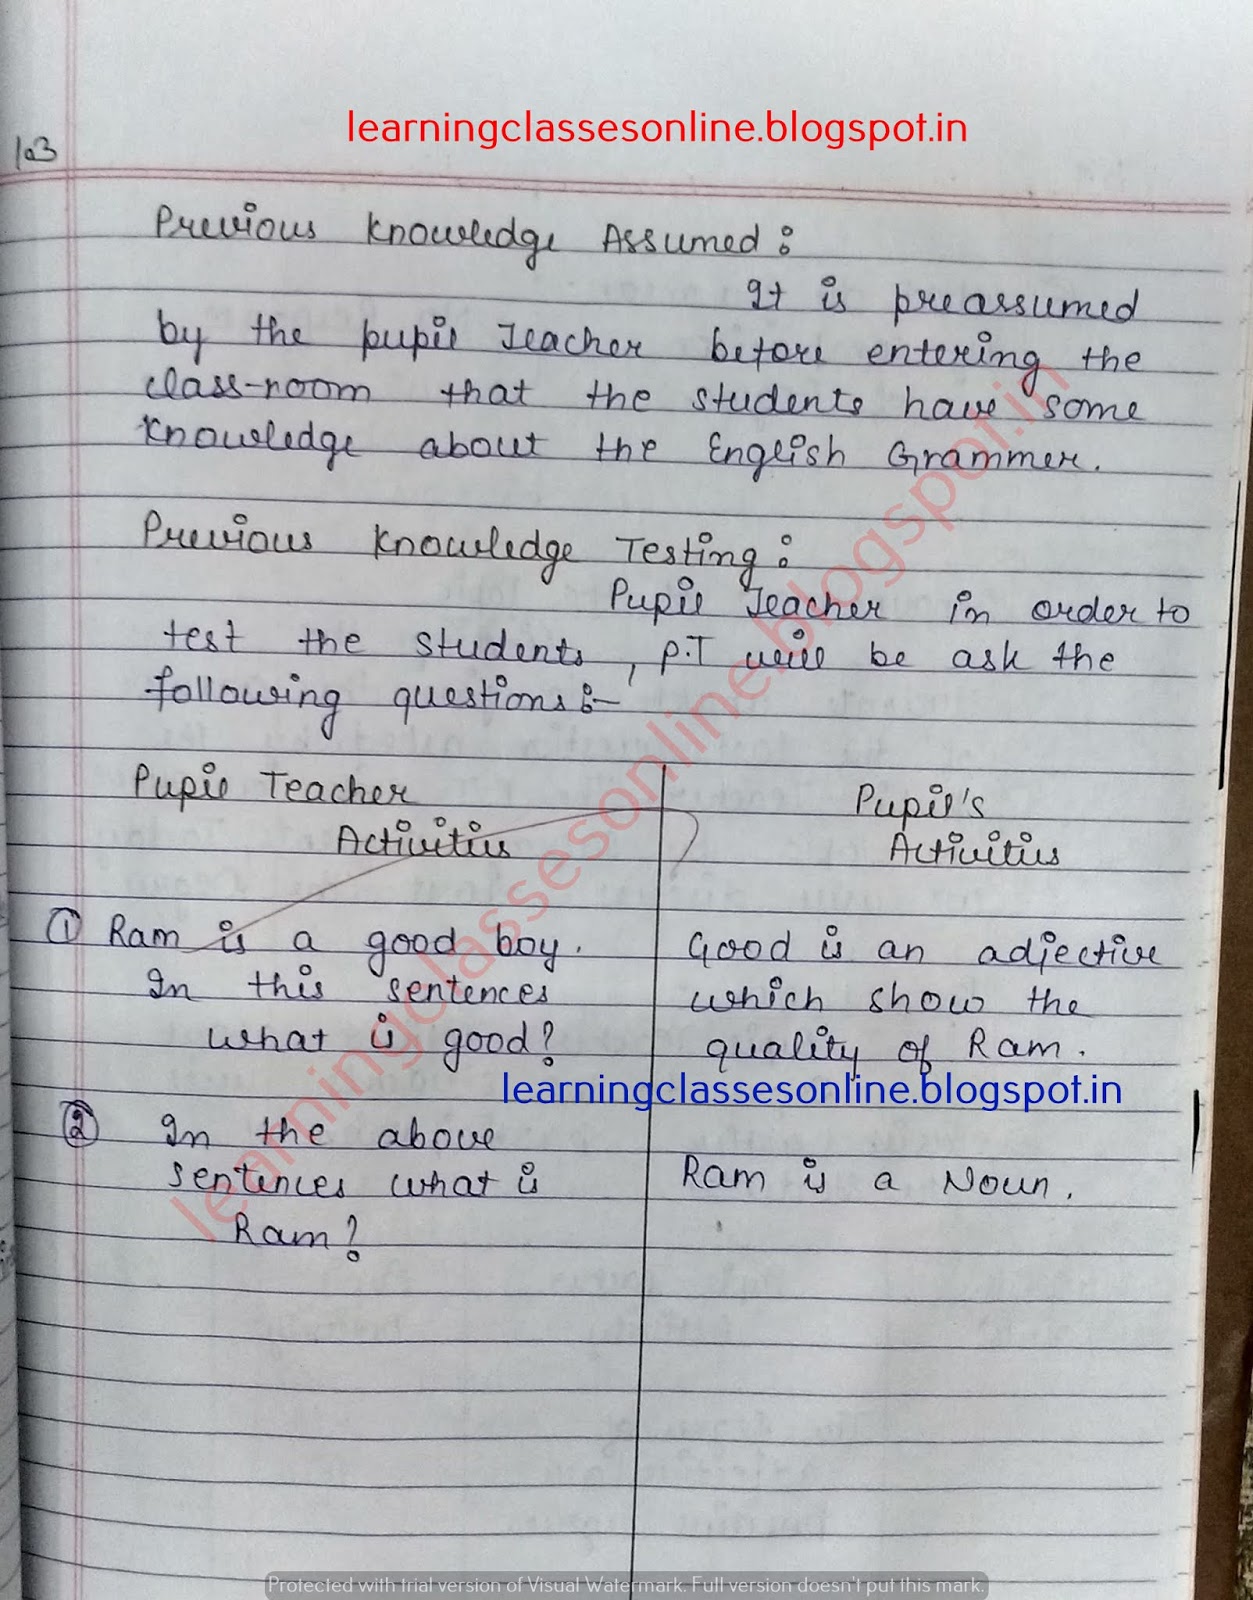 learningclassesonline.blogspot.in
103
Previous Knowledge Assumed :
It is preassumed
by the pupil Teacher before entering the
class-room that the students have some
Knowledge about the English Grammer.
Previous Knowledge Testing :
Pupil Teacher in order to
test the students, P.T will be ask the
following questions :-
Pupil Teacher
Activities
Pupil's
Activities
① Ram is a good boy.
In this sentences
what is good?
Good is an adjective
which show the
quality of Ram.
learningclassesonline.blogspot.in
② In the above
sentences what is
Ram?
Ram is a Noun.
learningclassesonline.blogspot.in
Protected with trial version of Visual Watermark. Full version doesn't put this mark.